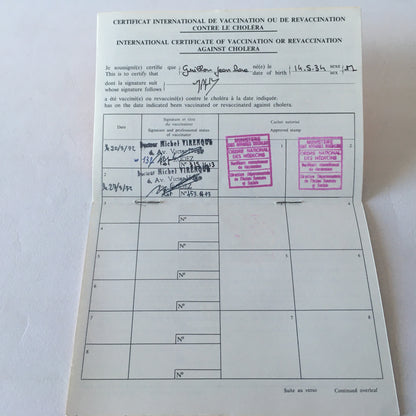 CERTIFICAT INTERNATIONAL DE VACCINATION OU DE REVACCINATION
CONTRE LE CHOLÉRA
INTERNATIONAL CERTIFICATE OF VACCINATION OR REVACCINATION
AGAINST CHOLERA
Je soussigné(e) certifie que né(e) le 14.5.34 sexe
This is to certify that date of birth sex
dont la signature suit
whose signature follows
a été vacciné(e) ou revacciné(e) contre le choléra à la date indiquée.
has on the date indicated been vaccinated or revaccinated against cholera.
Date
Signature et titre
du vaccinateur
Signature and professional status
of vaccinator
Cachet autorisé
Approved stamp
1
Docteur Michel VIRENQUE
MINISTERE
ORDRE NATIONAL
DES MÉDECINS
1
MINISTERE
ORDRE NATIONAL
DES MÉDECINS
2
2
Docteur Michel VIRENQUE
3
Nº
3
4
4
Nº
5
Nº
5
6
6
Nº
7
Nº
7
8
8
Nº
Suite au verso
Continued overleaf